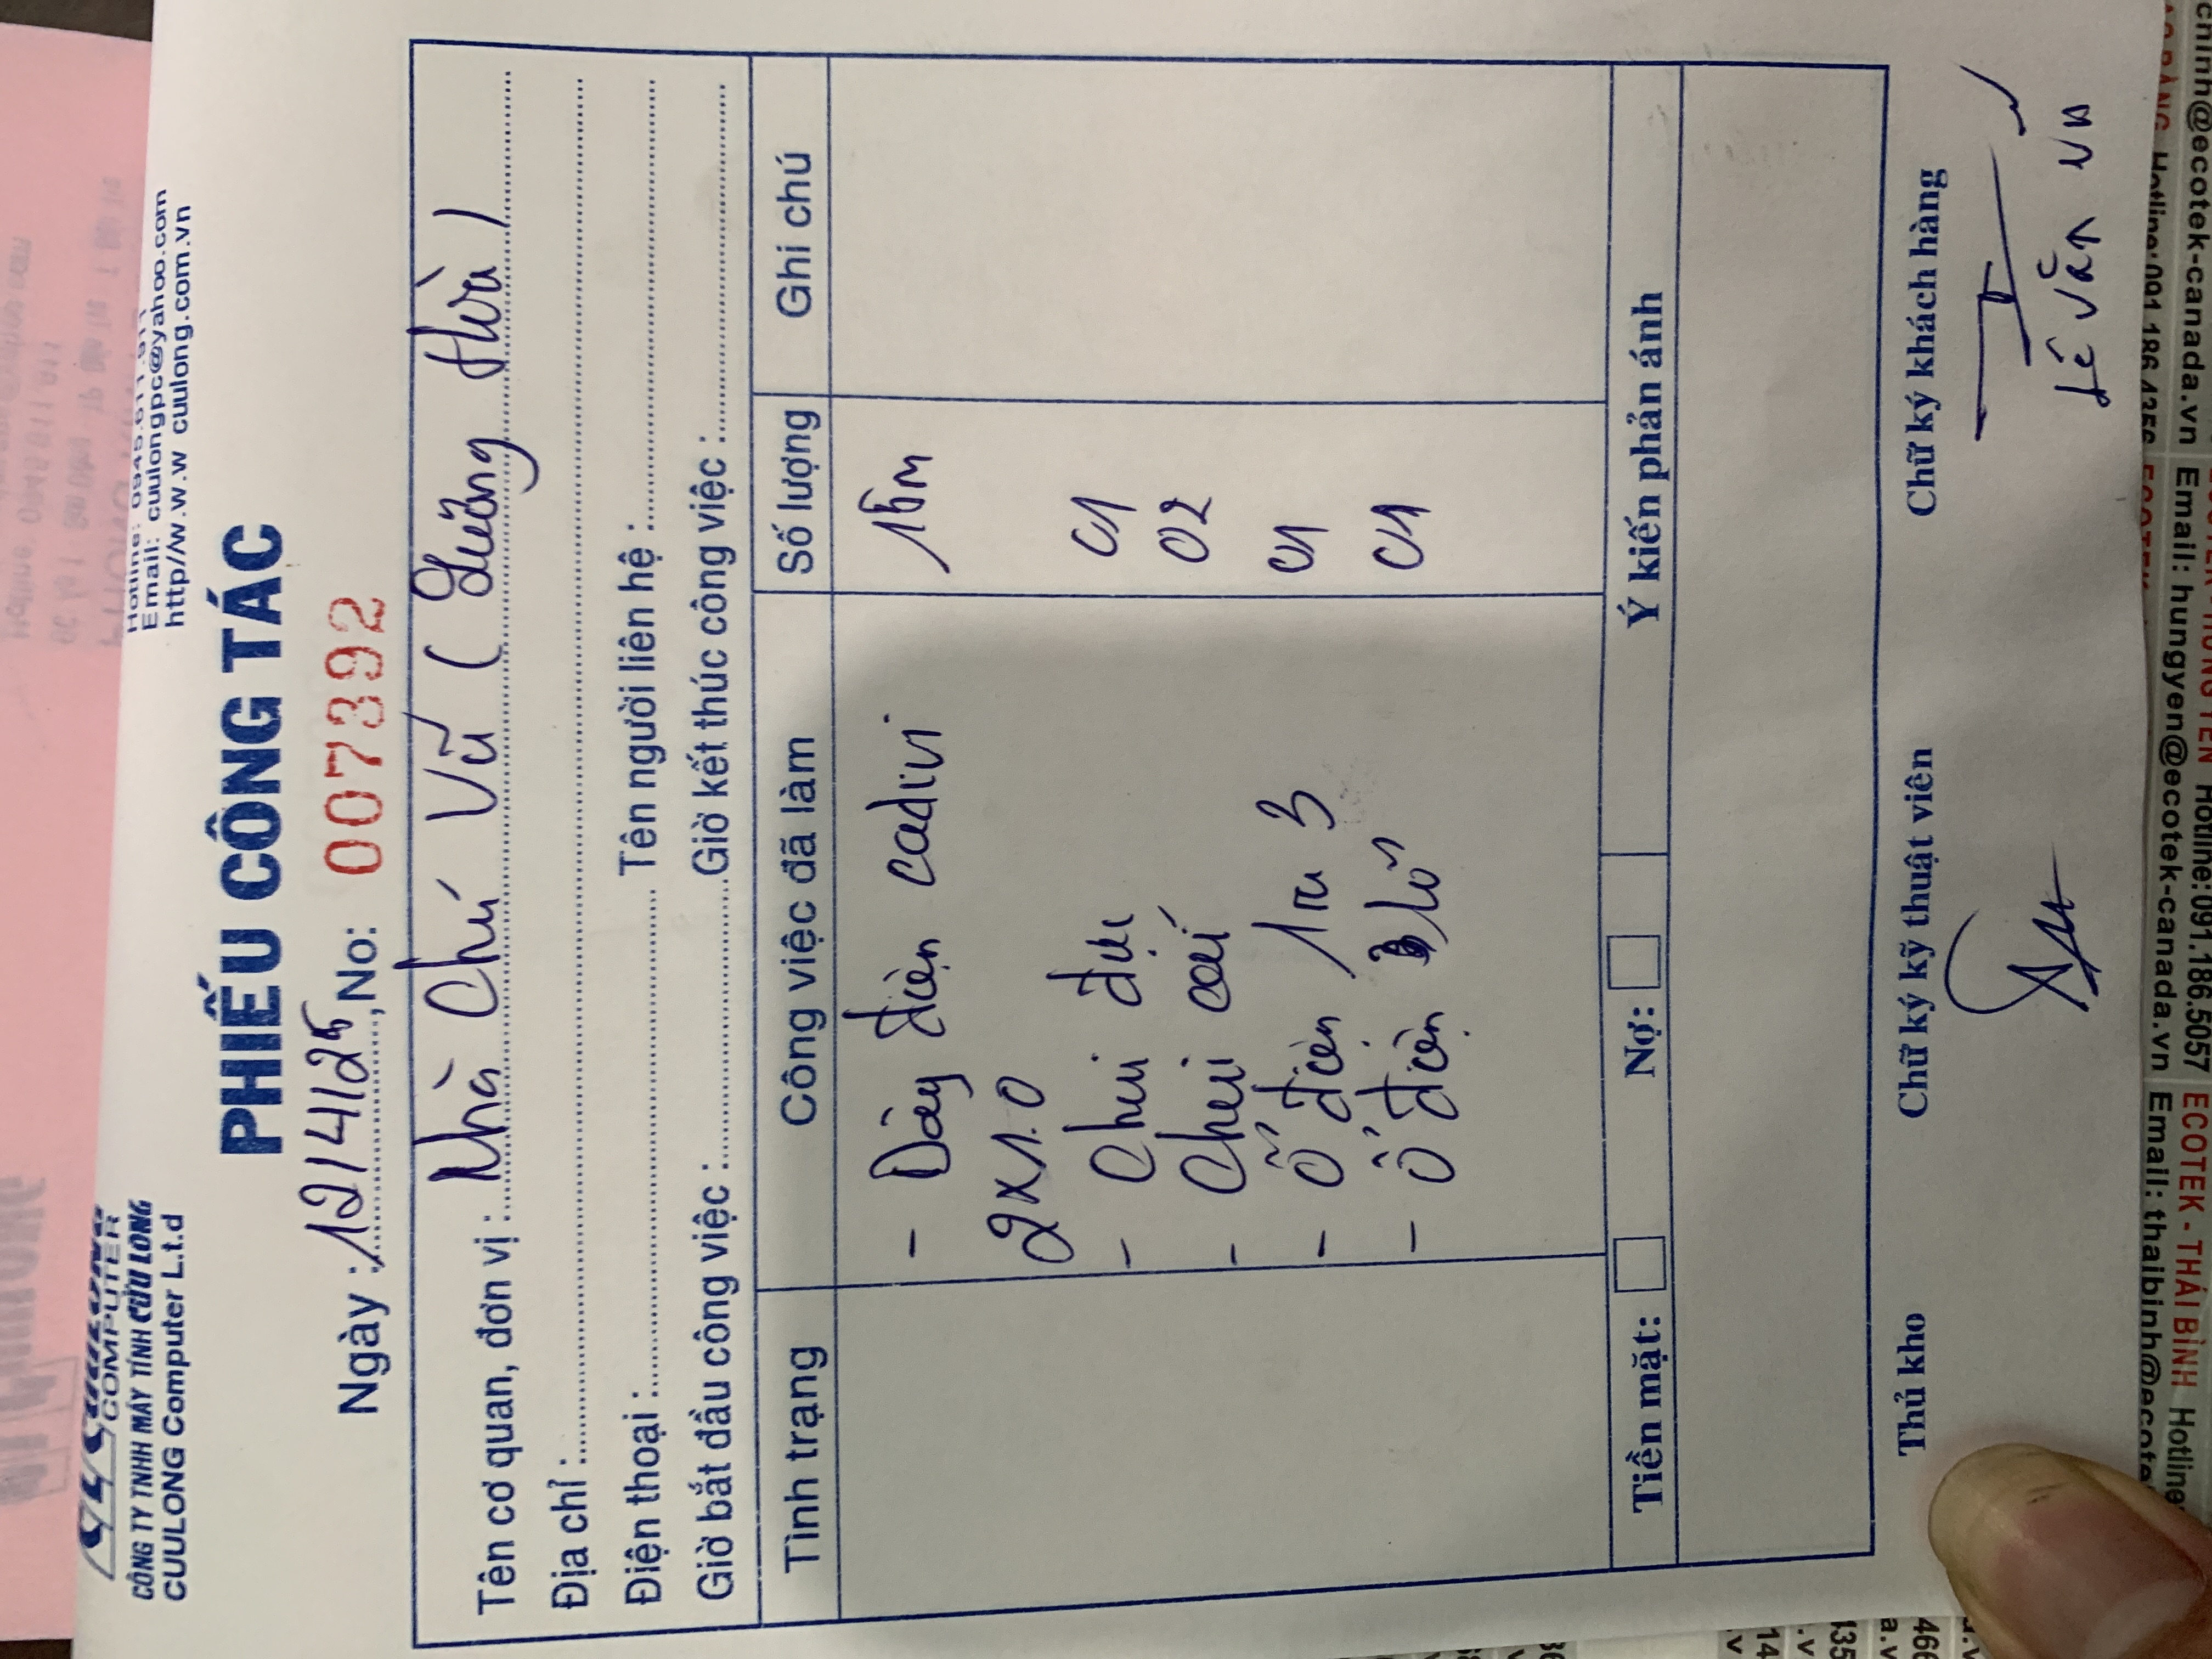 COMPUTER
CÔNG TY TNHH MÁY TÍNH CỬU LONG
CUULONG Computer L.t.d
Hotline: 0945.611.911
Email: cuulongpc@yahoo.com
http//w.w.w cuulong.com.vn
PHIẾU CÔNG TÁC
Ngày : 12/4/25, No: 007392
Tên cơ quan, đơn vị : Nhà Chú Vũ ( Lường Hưà )
Địa chỉ :
Điện thoại : Tên người liên hệ :
Giờ bắt đầu công việc : Giờ kết thúc công việc :
Tình trạng Công việc đã làm Số lượng Ghi chú
- Dây điện cadivi 15m
2x1.0
- Chui đực 01
- Chui cái 02
- Ổ điện 1 ra 3 01
- Ổ điện 3 lỗ 01
Tiền mặt: Nợ: Ý kiến phản ánh
Thủ kho Chữ ký kỹ thuật viên Chữ ký khách hàng
Lê Văn Vũ
ECOTEK - THÁI BÌNH Hotline
Email: thaibinh@ecote
Hotline:091.186.5057
Email: hungyen@ecotek-canada.vn
Hotline:091.186.4356
chinh@ecotek-canada.vn